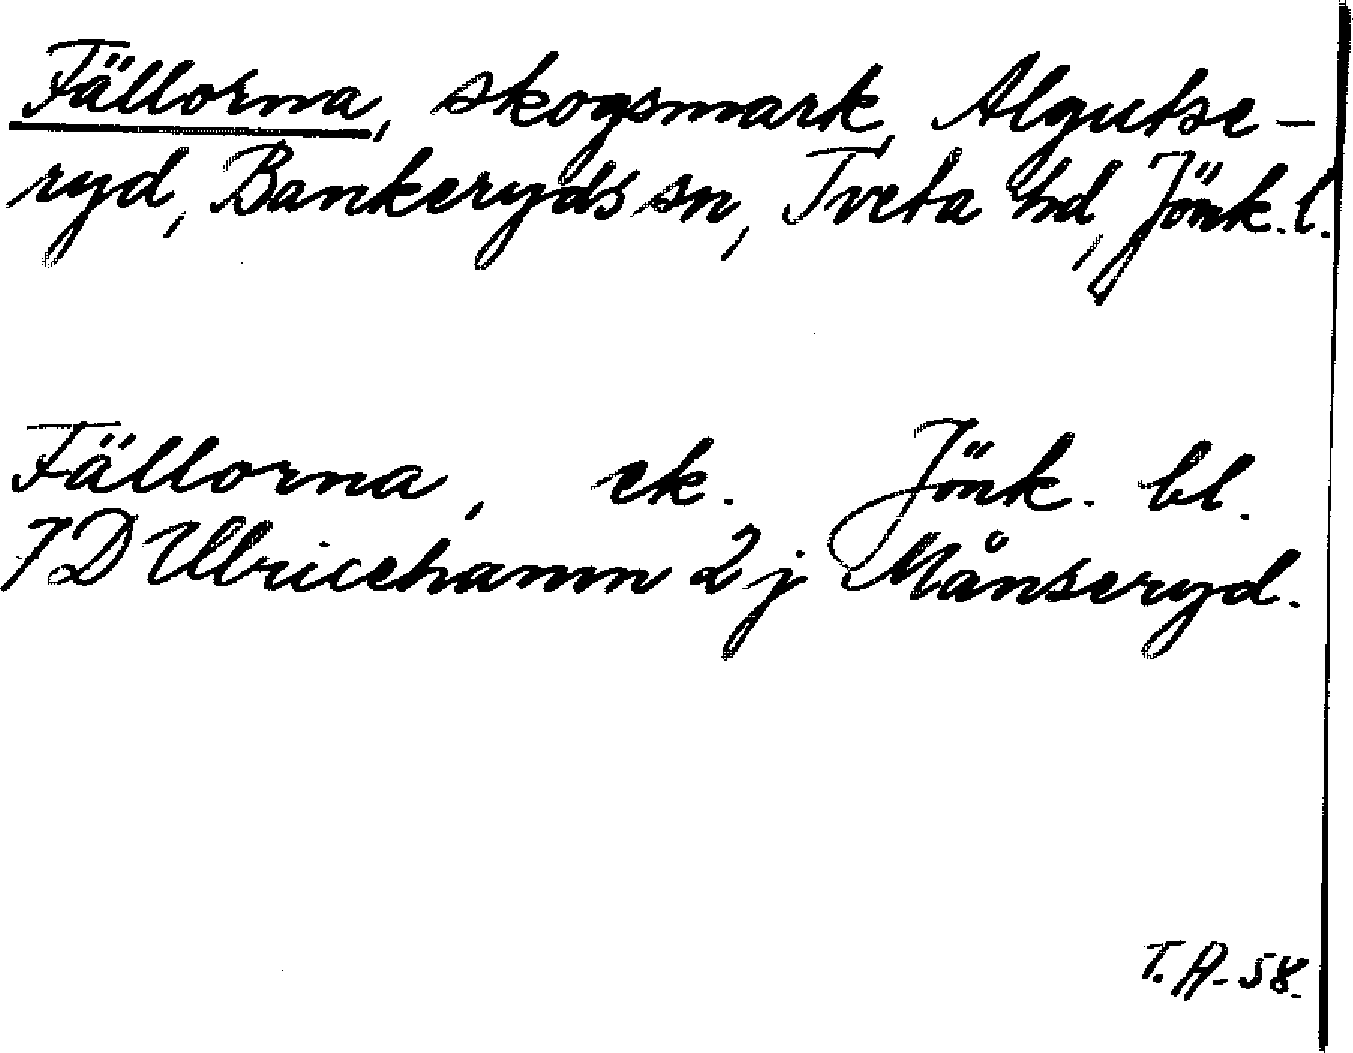 Fällorna, skogsmark, Algutse-
ryd, Bankeryds sn, Tveta hd, Jönk. l.
Fällorna, ek. Jönk. bl.
7D Ulricehamn 2j Månseryd.
T. A-58.